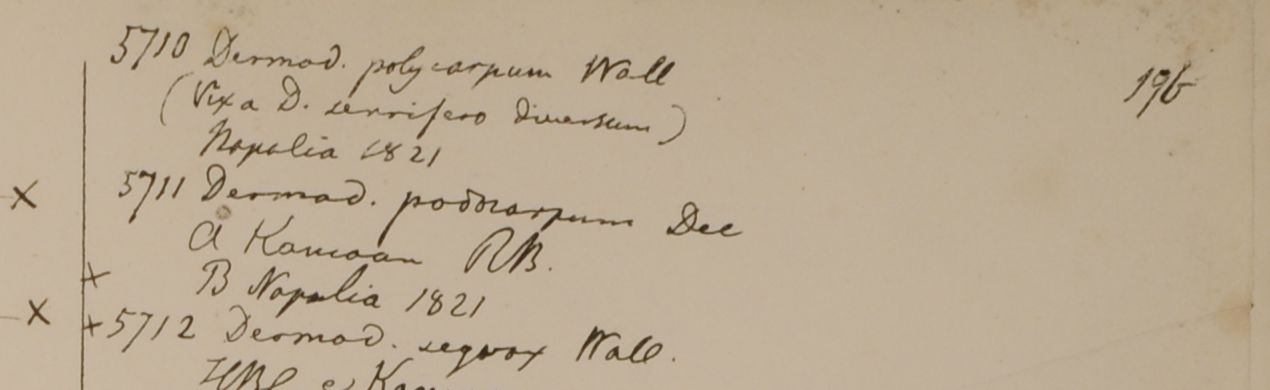 5710 Dermod. polycarpum Wall
196
(Vix a D. serrifero diversum)
Napalia 1821
X 5711 Dermod. podocarpum Dec
A Kamoan RB.
x B Napalia 1821
X x 5712 Dermod. sequax Wall.
HBC e